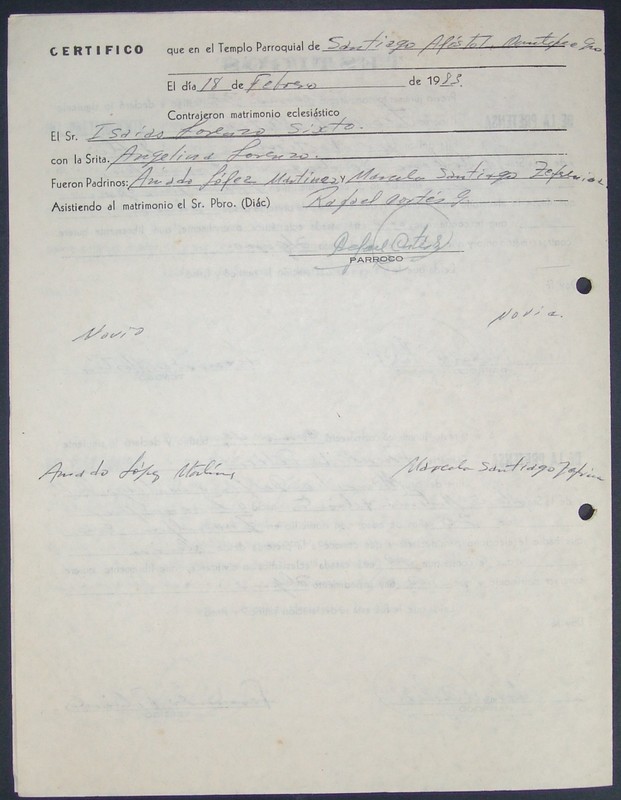 CERTIFICO que en el Templo Parroquial de Santiago Apóstol.
El día 18 de Febrero de 1983.
Contrajeron matrimonio eclesiástico
El Sr. Isaías Lorenzo Sixto.
con la Srita. Angelina Lorenzo.
Fueron Padrinos: Amado López Martínez y Marcela Santiago
Asistiendo al matrimonio el Sr. Pbro. (Diác) Rafael Cortés G.
Rafael Cortés
PARROCO
Novia.
Novio
Amado López Martínez
Marcela Santiago